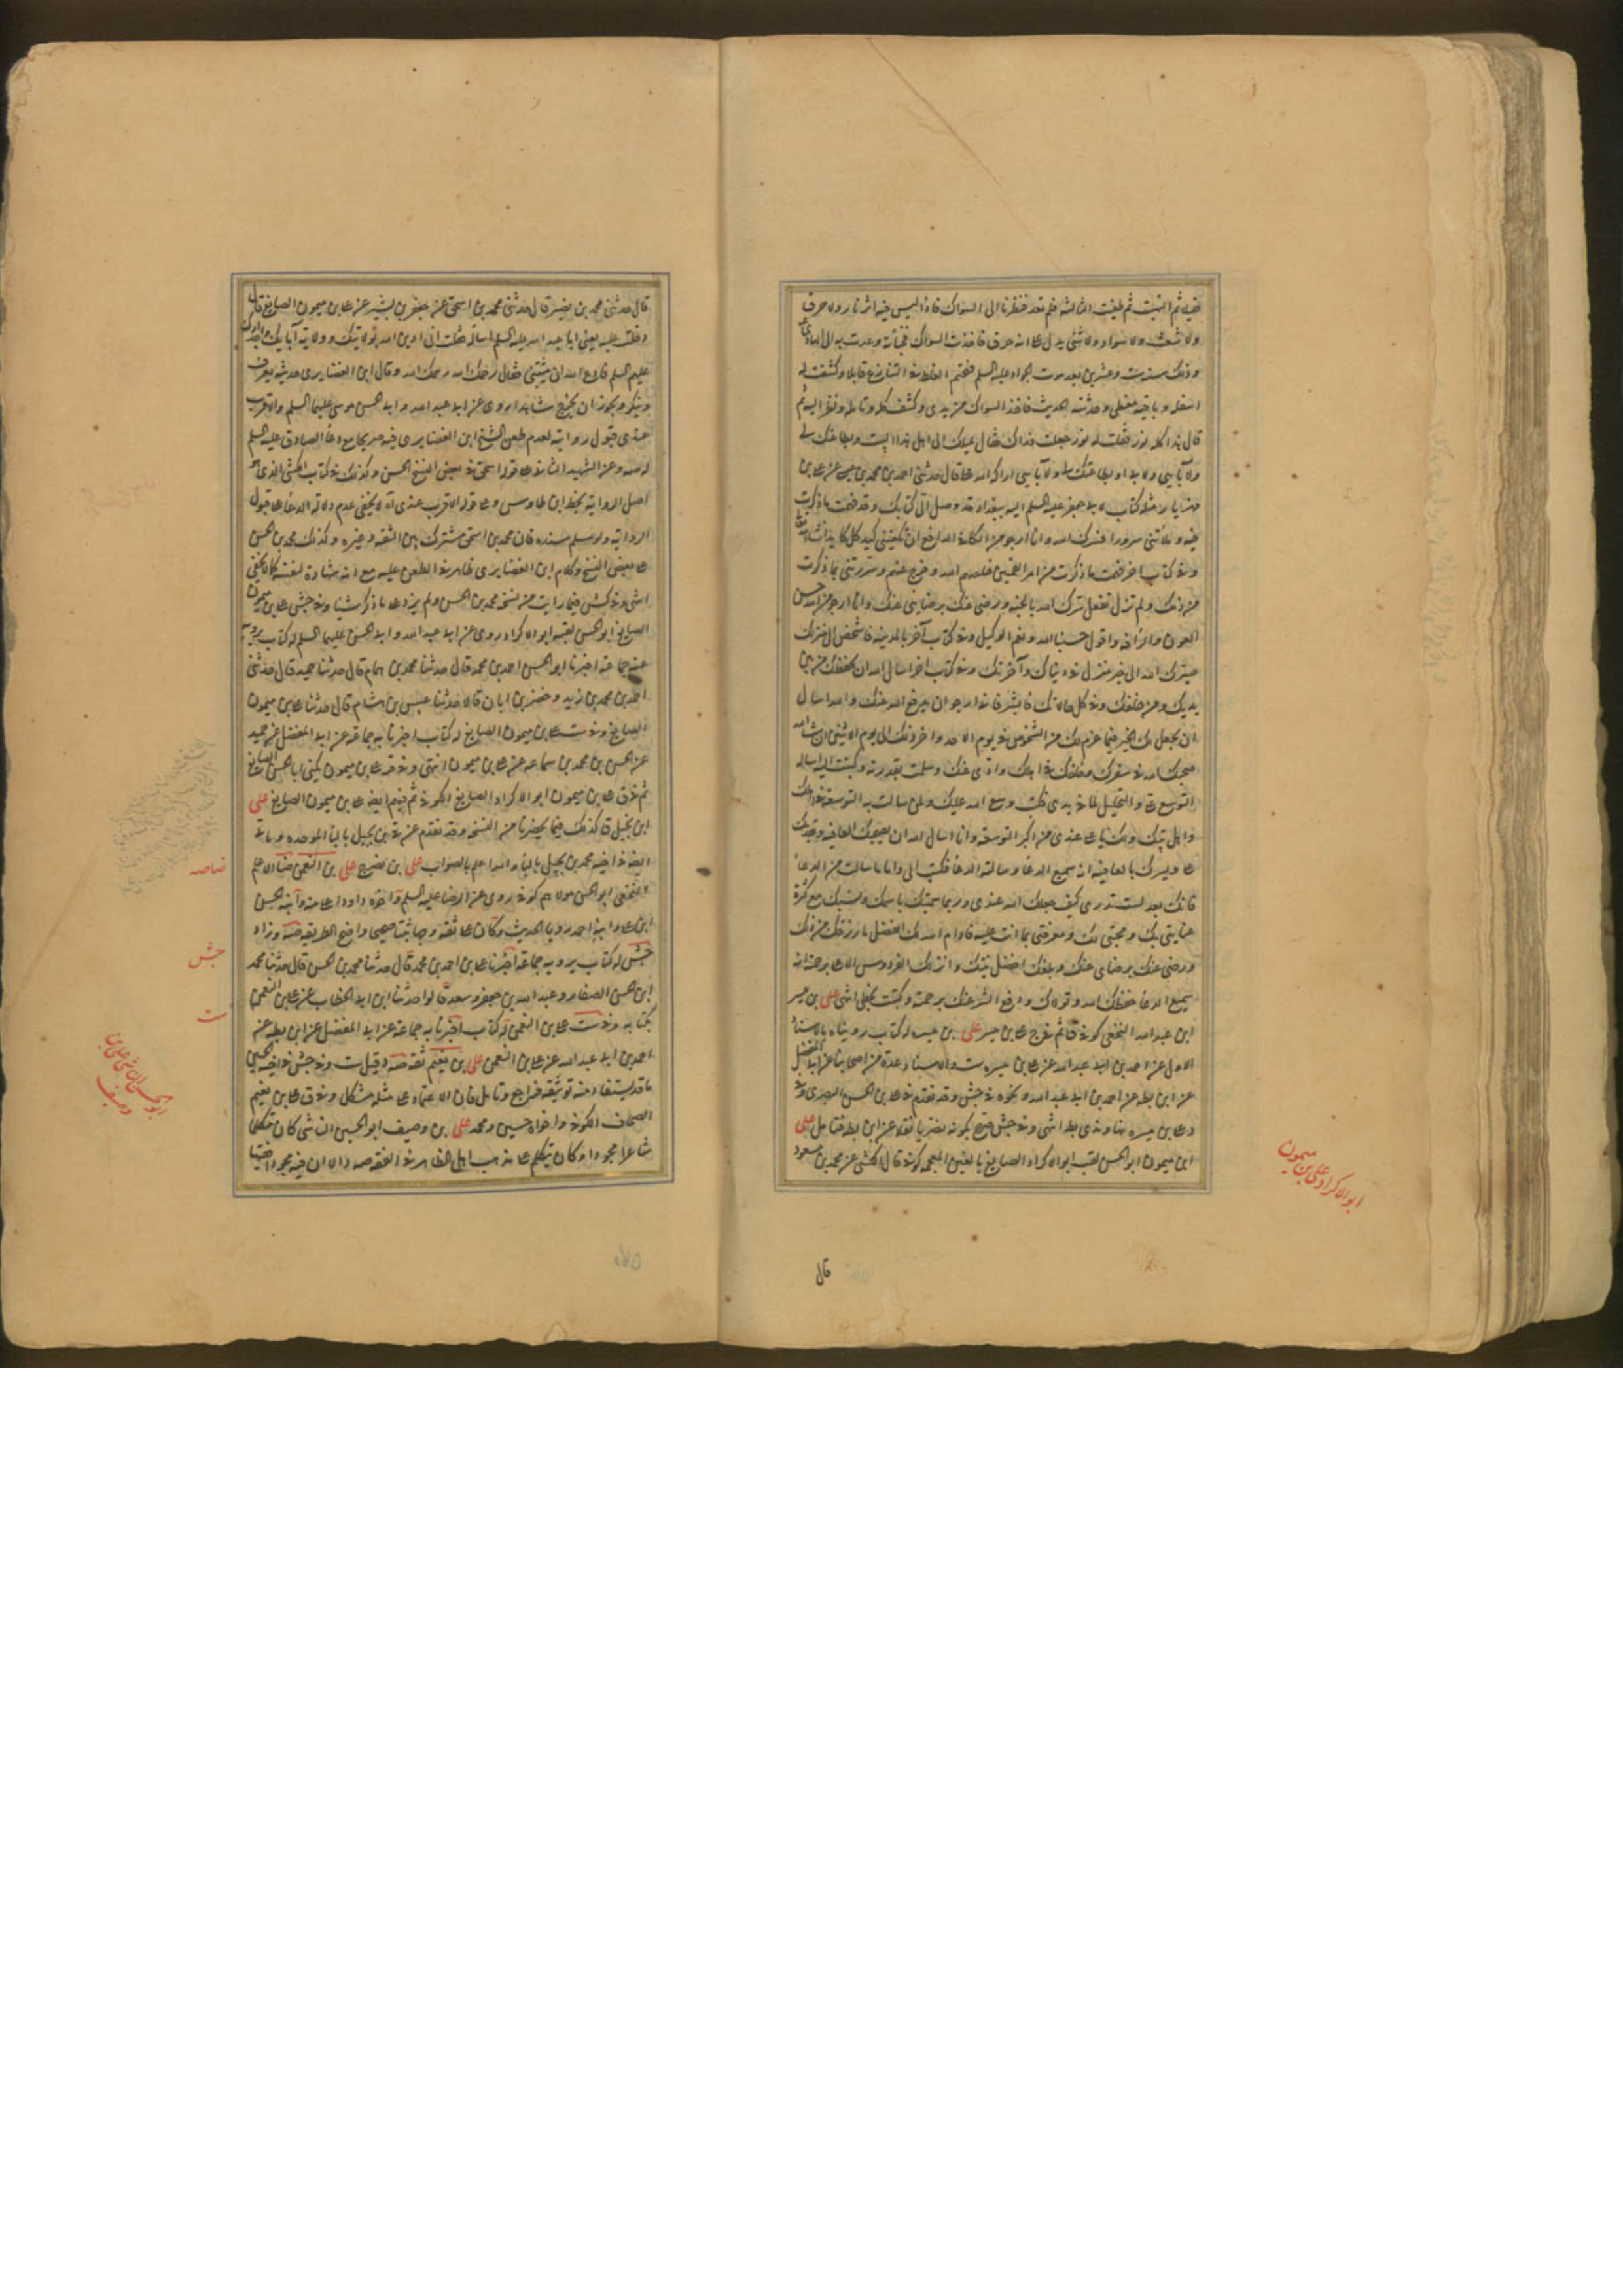 ثم التهبت ثم طفيت الثالثة فلم تعد فنظرنا الى السواك فاذا ليس فيه اثر نار ولا حرق
ولا شعث ولا سواد ولا شئ يدل على انه حرق فاخذت السواك فخبأته وعدت به الى الهادى
وذلك سنة ست وعشرين بعد موت الجواد عليه السلم
اسفله وباقيه مغطى وحدثته الحديث فاخذ السواك من يدى وكشفه كله وتامله ونظر اليه ثم
قال هذا نور فقلت له نور جعلت فداك فقال بميلك الى اهل هذا البيت وبطاعتك لى
ولابائى ولابى او بطاعتك لى ولابائى اراكه الله على قال حدثنى احمد بن محمد بن عيسى عن على بن
مهزيار مثله كتاب لابى جعفر عليه السلم اليه ببغداد قد وصل الى كتابك وقد فهمت ما ذكرت
فيه وملأتنى سرورا فسرك الله وانا ارجو من الكافى الدافع ان تكفينى كيد كل كايد انشاء الله
وفى كتاب اخر فهمت ما ذكرت من امر القميين خلصهم الله وفرج عنهم وسررتنى بما ذكرت
من ذلك ولم تزل تفعل سرك الله بالجنة ورضى عنك برضائى عنك وانا ارجو من الله حسن
العون والرأفة واقول حسبنا الله ونعم الوكيل وفى كتاب آخر بالمدينة فاشخص الى منزلك
صيرك الله الى خير منزل فى دنياك وآخرتك وفى كتاب اخر اسأل الله ان يحفظك من بين
يديك ومن خلفك وفى كل حالاتك فابشر فانى ارجو ان يدفع الله عنك والله اسأل
ان يجعل لك الخير فيما عزم لك من الشخوص فى يوم الاحد واخر ذلك الى يوم الاثنين ان شاء الله
صحبك الله فى سفرك وخلفك فى اهلك وادى عنك وسلمت بقدرته وكتبت اليه اساله
التوسع على والتحليل لما فى يدى فكتب وسع الله عليك ولمن سالت به التوسعة فى اهلك
واهل بيتك ولك يا على عندى من اكبر التوسعة وانا اسال الله ان يصحبك العافية ويقدمك
على ويسرك بالعافية انه سميع الدعا وسالته الدعا فكتب الى واما ما سالت من الدعا
فانك بعد لست تدرى كيف جعلك الله عندى وربما سميتك باسمك ونسبك مع كثرة
عنايتى بك ومحبتى لك ومعرفتى بما انت عليه فادام الله لك افضل ما رزقك من ذلك
ورضى عنك برضاى عنك وبلغك افضل نيتك وانزلك الفردوس الاعلى برحمته انه
سميع الدعا حفظك الله وتولاك ودفع الشر عنك برحمته وكتبت بخطى انتهى على بن ميسر
ابن عبد الله النخعى كوفى ق ثم فى ج على بن ميسر على بن ميسره له كتاب رويناه بالاسناد
الاول عن احمد بن ابى عبد الله عن على بن ميسره ست والاسناد عدة من اصحابنا عن ابى المفضل
عن ابن بطه عن احمد بن ابى عبد الله ونحوه فى جش وقد تقدم فى على بن الحسن البصرى
ابن ميمون ابو الحسن لقبه ابو الاكراد الصايغ بالغين المعجمه كوفى قال الكشى عن محمد بن مسعود
ابو الاكراد على بن ميمون
قال
قال حدثنى محمد بن نصير قال حدثنى محمد بن اسحق عن جعفر بن بشير عن على بن ميمون الصايغ قال
دخلت عليه يعنى ابا عبد الله عليه السلم اساله فقلت انى ادين الله بولايتك وولاية آبائك واجدادك
عليهم السلم فادع الله ان يثبتنى فقال رحمك الله رحمك الله وقال ابن الغضايرى حديثه يعرف
وينكر ويجوز ان يخرج شاهدا روى عن ابى عبد الله وابى الحسن موسى عليهما السلم والاقرب
عندى قبول روايته لعدم طعن الشيخ ابن الغضايرى فيه صريحا مع دعا الصادق عليه السلم
له صه وعن الشهيد الثانى على قوله اسحق فى بعض النسخ الحسن وكذلك فى كتاب الكشى الذى هو
اصل الرواية بخط ابن طاوس وعلى قوله الاقرب عندى آه لا يخفى عدم دلالة الدعا على قبول
الرواية ولو سلم سنده فان محمد بن اسحق مشترك بين الثقة وغيره وكذلك محمد بن الحسن
على بعض النسخ وكلام ابن الغضايرى ظاهر فى الطعن عليه مع انه شهادة لنفسه كما لا يخفى
انتهى وفى كش فيما رايت من نسخه محمد بن الحسن ولم يزد على ما ذكر شيئا وفى جش على بن ميمون
الصايغ ابو الحسن لقبه ابو الاكراد روى عن ابى عبد الله وابى الحسن عليهما السلم له كتاب يرويه
عنه جماعة اخبرنا ابو الحسن احمد بن محمد قال حدثنا محمد بن همام قال حدثنا حميد قال حدثنى
احمد بن محمد بن زيد وخضر بن ابان قالا حدثنا عبيس بن هشام قال حدثنا على بن ميمون
الصايغ وفى ست على بن ميمون الصايغ له كتاب اخبرنا به جماعة عن ابى المفضل عن حميد
عن الحسن بن محمد بن سماعه عن على بن ميمون انتهى وفى قر على بن ميمون يكنى ابا الحسن الصايغ
ثم فى ق على بن ميمون ابو الاكراد الصايغ الكوفى ثم فيهم ايضا على بن ميمون الصايغ على
ابن بجيل ق كذلك فيما يحضرنا من النسخه وقد تقدم عن ق ابن بجيل بالبا الموحده
ايضا فى اخيه محمد بن بجيل بالبا والله اعلم بالصواب على بن نصرج على بن النعمن الاعلم
النخعى ابو الحسن مولاهم كوفى روى عن الرضا عليه السلم واخوه داود اعلا منه وابنه الحسن
ابن على وابنه احمد رويا الحديث وكان على ثقه وجها ثبتا صحيحا واضح الطريقه صه وزاد
جش له كتاب يرويه جماعة اخبرنا على بن احمد بن محمد قال حدثنا محمد بن الحسن قال حدثنا محمد
ابن الحسن الصفار وعبد الله بن جعفر وسعد قالوا حدثنا ابن ابى الخطاب عن على بن النعمن
بكتابه وفى ست على بن النعمن له كتاب اخبرنا به جماعة عن ابى المفضل عن ابن بطه عن
احمد بن ابى عبد الله عن على بن النعمن على بن نعيم ثقه صه وفى جش فى اخيه الحسين
ما قد يستفاد منه توثيقه فراجع وتامل فان الاعتماد على مثله مشكل وفى ق على بن نعيم
الصحاف الكوفى واخواه حسين ومحمد على بن وصيف ابو الحسين الناشى كان متكلما
شاعرا مجودا وكان يتكلم على مذهب اهل الظاهر فى الفقه
خلاصه
جش
ست
ابو الحسين الناشى على بن وصيف